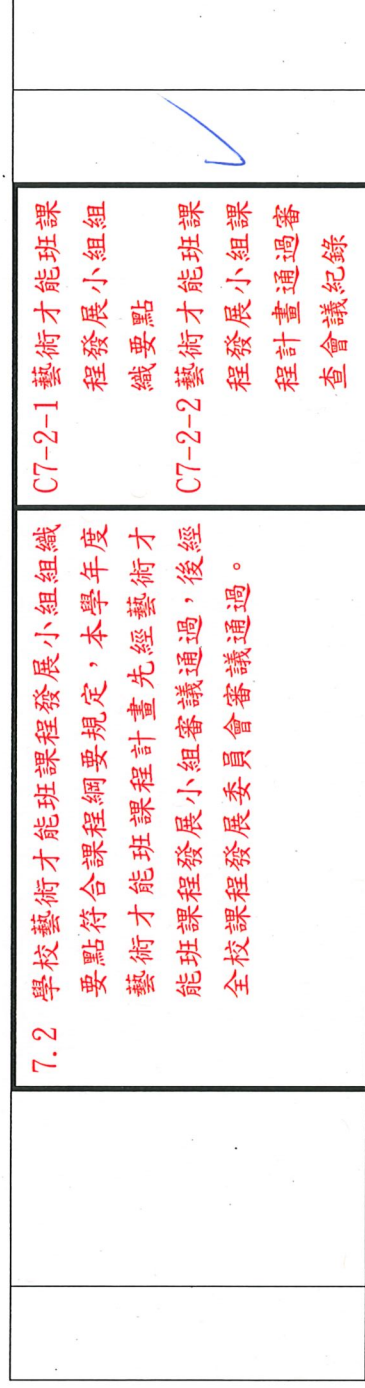 7.2 學校藝術才能班課程發展小組組織
要點符合課程綱要規定，本學年度
藝術才能班課程計畫先經藝術才
能班課程發展小組審議通過，後經
全校課程發展委員會審議通過。
C7-2-1 藝術才能班課
程發展小組組
織要點
C7-2-2 藝術才能班課
程發展小組課
程計畫通過審
查會議紀錄